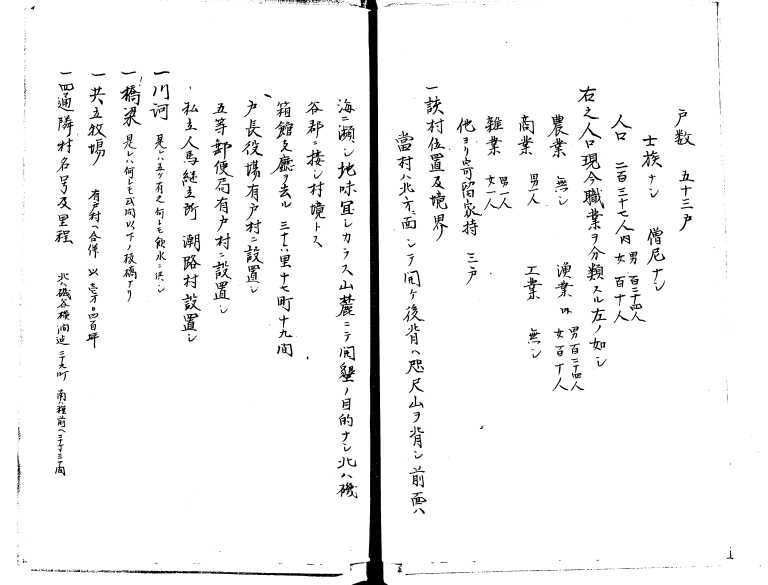 戸数　五十三戸
士族ナシ　僧尼ナシ
人口　二百三十七人内　男　百二十四人　女　百十人
右之人口現今職業ヲ分類スル左ノ如シ
農業　無シ　漁業　内　男百二十四人　女百十人
商業　男一人　工業　無シ
雑業　男一人　女一人
他ヨリ寄留家持　三戸
一該村位置及境界
当村ハ北方ニ面シテ開ケ後背ヘ咫尺山ヲ背シ前面ハ
海ニ瀕シ地味宜シカラス山麓ニテ開墾ノ目的ナシ北ハ磯
谷郡ニ接シ村境トス
箱館支廳ヲ去ル　三十六里十七町十九間
戸長役場有戸村ニ設置シ
五等郵便局有戸村ニ設置シ
私立人馬継立所　潮路村設置シ
一川河　是レハ五ケ有之何レモ飲水ニ供シ
一橋梁　是レハ何レモ弐間以下ノ板橋ナリ
一共立牧場　有戸村ヘ合併
一四通隣村名号及里程　北ハ磯谷横澗迄三十九町　南ハ種前ヘ